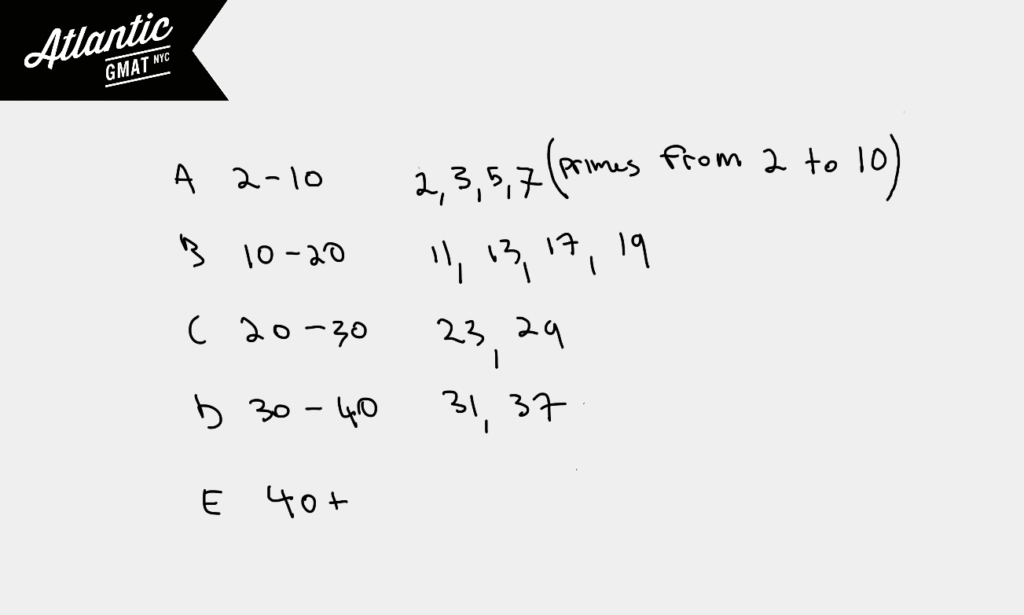 Atlantic
GMAT NYC
A 2-10 2, 3, 5, 7 (primes from 2 to 10)
B 10-20 11, 13, 17, 19
C 20-30 23, 29
D 30-40 31, 37
E 40+